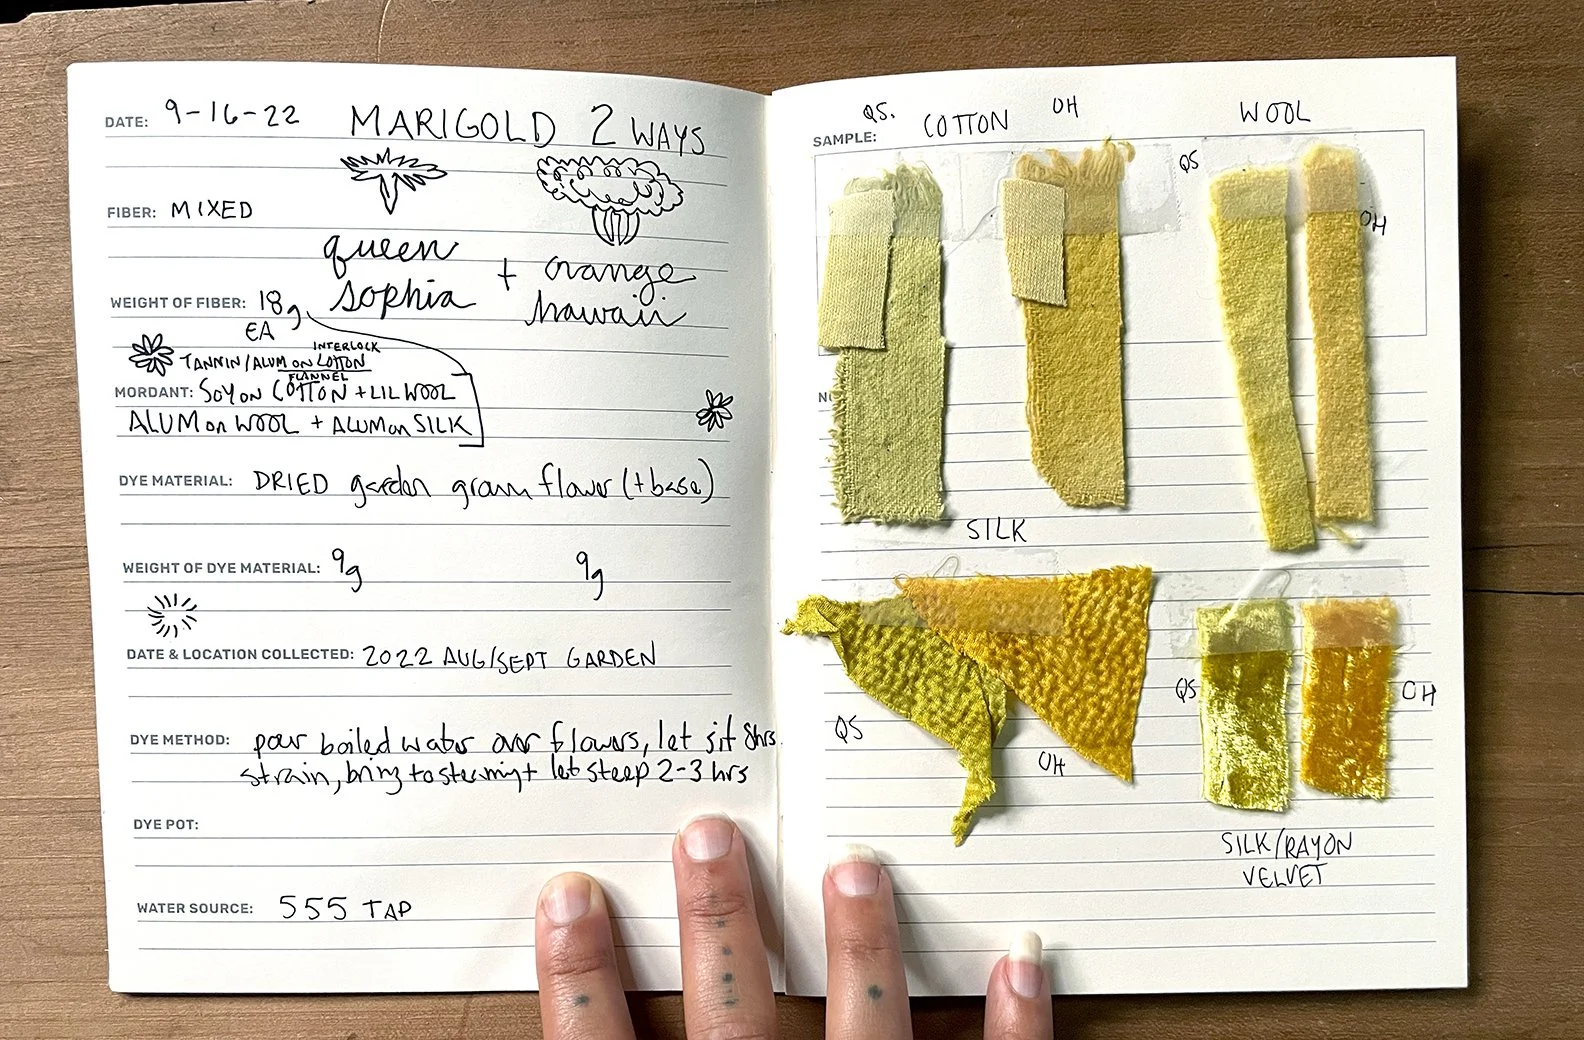 DATE: 9-16-22 MARIGOLD 2 WAYS
FIBER: MIXED
queen sophia + orange hawaii
WEIGHT OF FIBER: 18g
EA
INTERLOCK
TANNIN/ALUM ON COTTON
FLANNEL
MORDANT: SOY on COTTON + LIL WOOL
ALUM on WOOL + ALUM on SILK
DYE MATERIAL: DRIED garden grown flower (+ base)
WEIGHT OF DYE MATERIAL: 9g 9g
DATE & LOCATION COLLECTED: 2022 AUG/SEPT GARDEN
DYE METHOD: pour boiled water over flowers, let sit 8hrs
strain, bring to steaming + let steep 2-3 hrs
DYE POT:
WATER SOURCE: 555 TAP
QS. COTTON OH WOOL
SAMPLE:
QS
OH
SILK
QS OH
QS OH
SILK/RAYON
VELVET